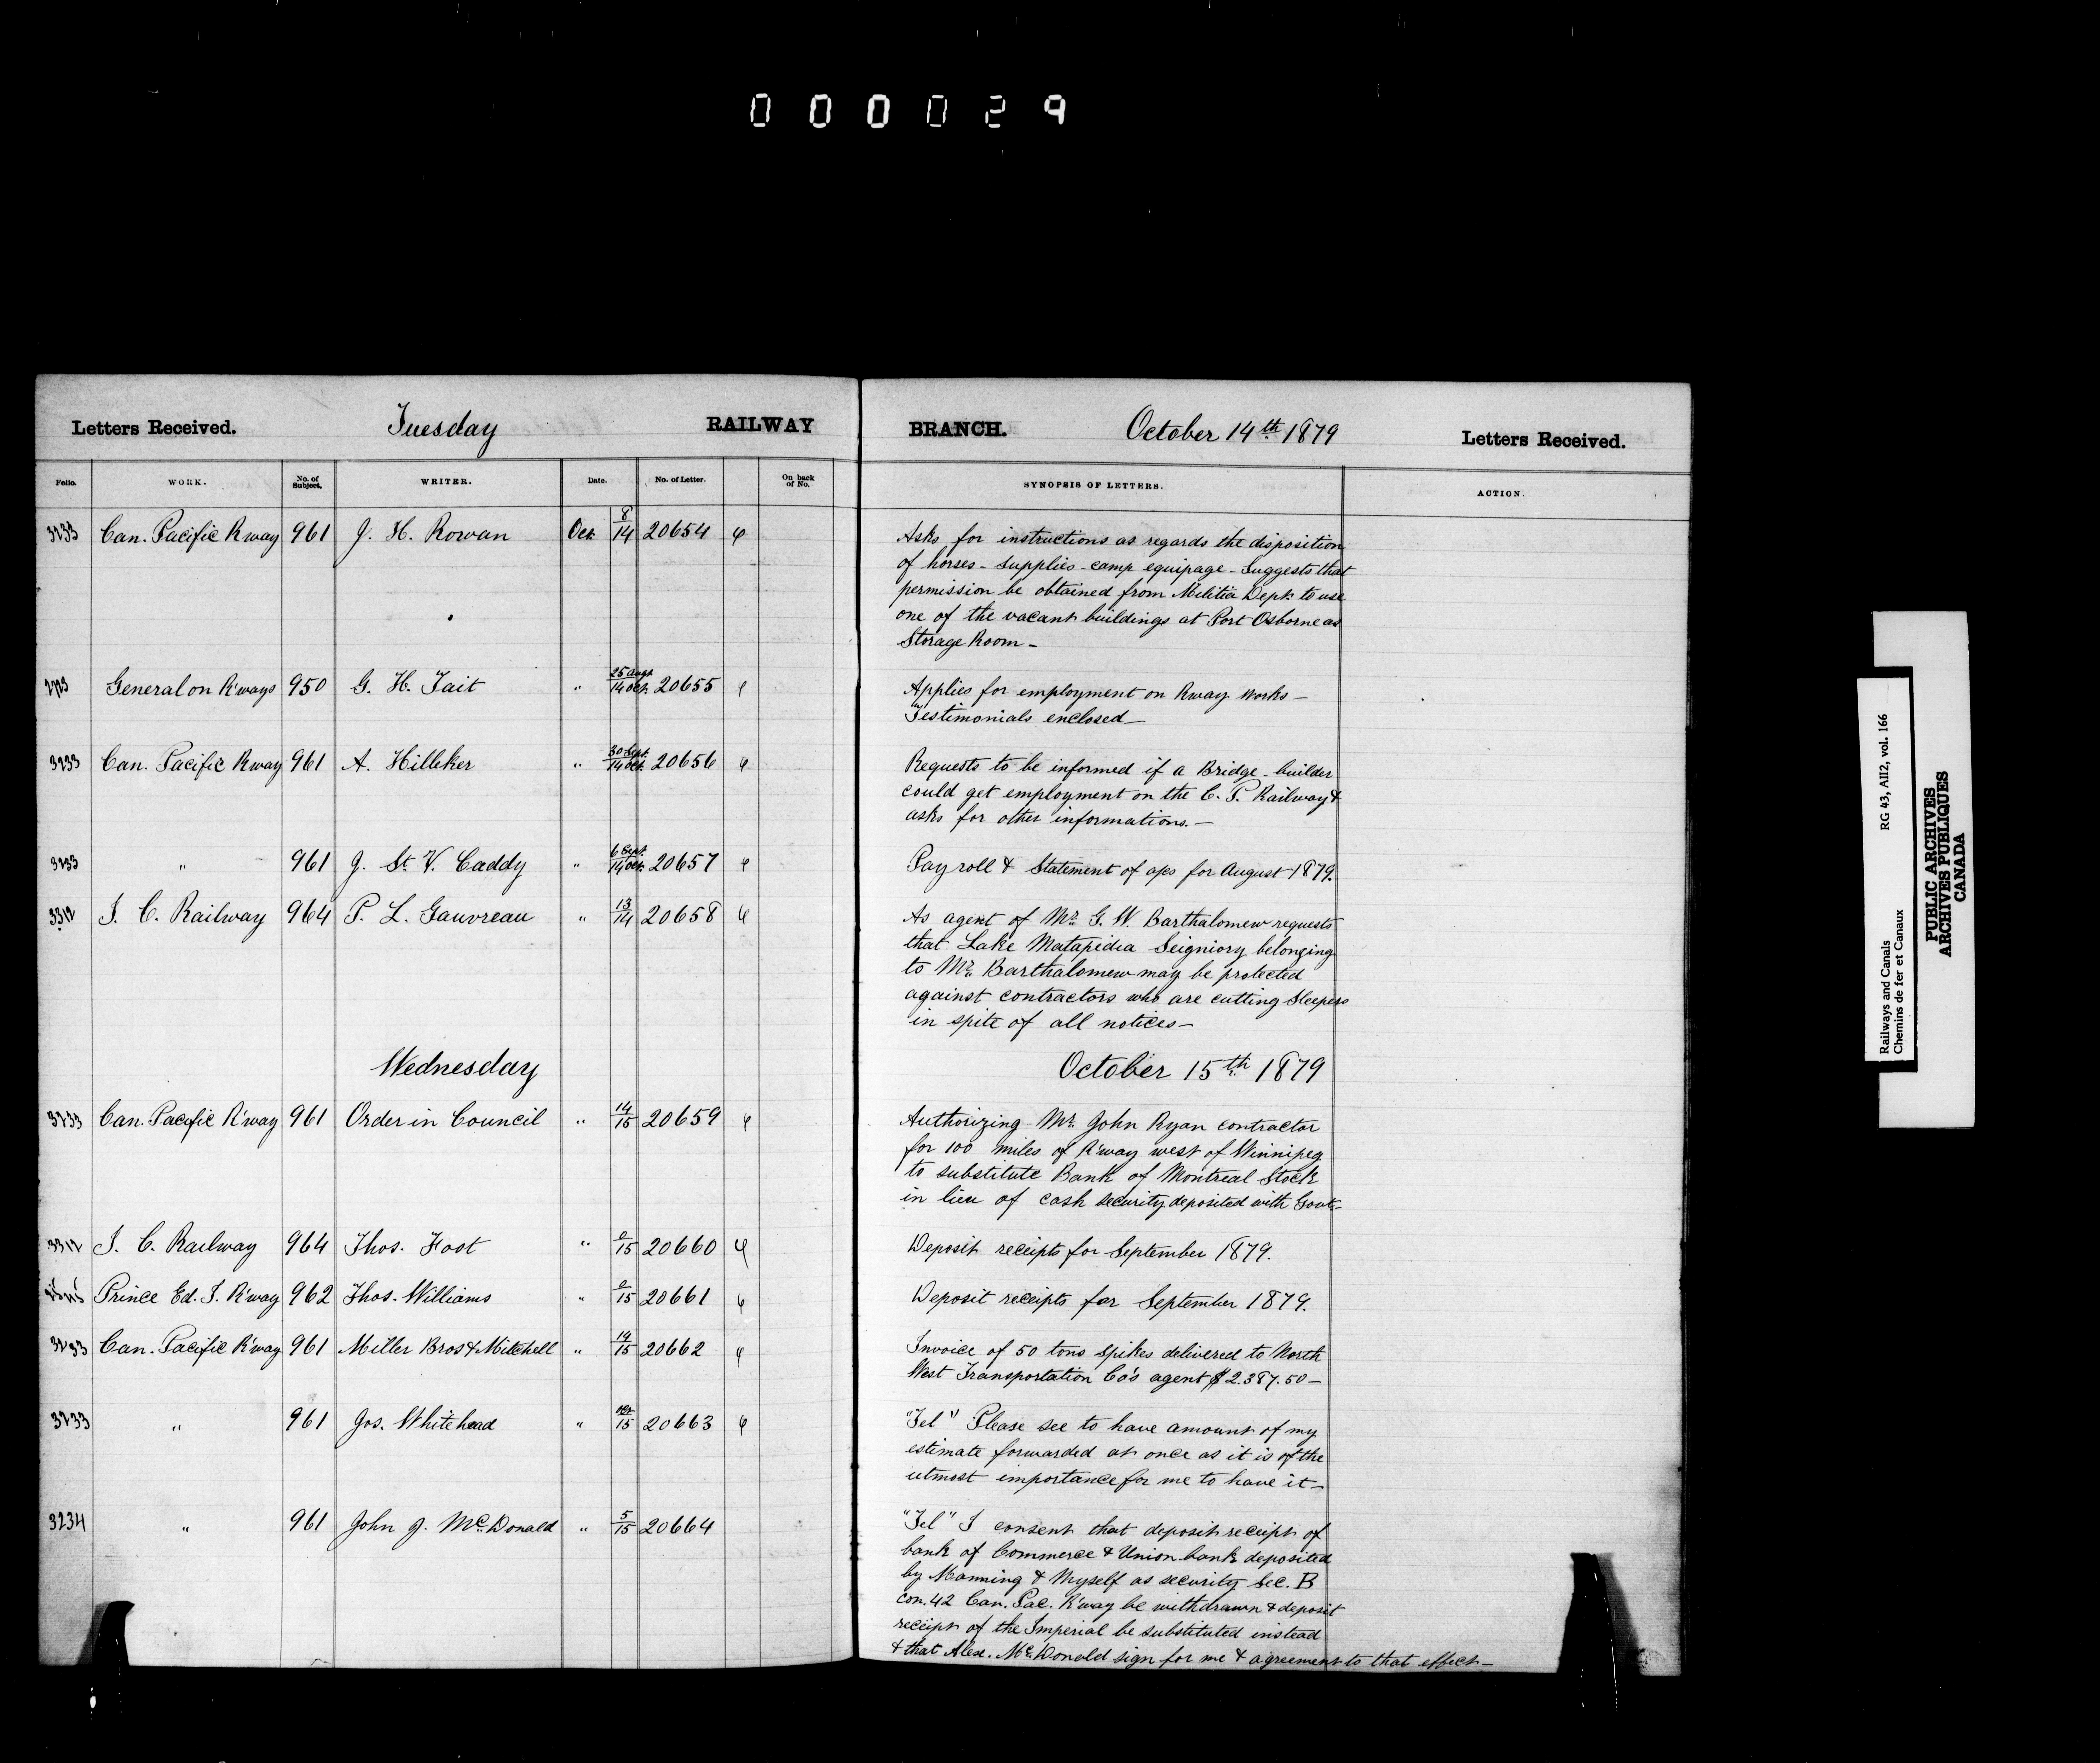 000029
Letters Received. Tuesday RAILWAY BRANCH. October 14th 1879 Letters Received.
Folio. WORK. No. of Subject. WRITER. Date. No. of Letter. On back of No. SYNOPSIS OF LETTERS. ACTION.
3233 Can. Pacific Rway 961 J. H. Rowan Oct. 8/14 20654 Asks for instructions as regards the disposition
of horses - supplies - camp equipage - Suggests that
permission be obtained from Militia Dept. to use
one of the vacant buildings at Fort Osborne as
Storage Room -
General on R'ways 950 G. H. Tait " 25 Augt./14 Oct. 20655 Applies for employment on Rway Works -
Testimonials enclosed -
3233 Can. Pacific Rway 961 A. Hilliker " 30 Sept./14 Oct. 20656 Requests to be informed if a Bridge-builder
could get employment on the C. P. Railway &
asks for other informations. -
3233 " 961 J. St. V. Caddy " 6 Sept./14 Oct. 20657 Pay roll & Statement of a/cs for August 1879.
3312 I. C. Railway 964 P. L. Gauvreau " 13/14 20658 As agent of Mr. G. W. Barthalomew requests
that Lake Matapedia Seigniory belonging
to Mr. Barthalomew may be protected
against contractors who are cutting Sleepers
in spite of all notices -
Wednesday October 15th 1879
3233 Can. Pacific R'way 961 Order in Council " 14/15 20659 Authorizing Mr. John Ryan contractor
for 100 miles of R'way west of Winnipeg
to substitute Bank of Montreal Stock
in lieu of cash security deposited with Govt. -
3312 I. C. Railway 964 Thos. Foot " 0/15 20660 Deposit receipts for September 1879.
Prince Ed. I. R'way 962 Thos. Williams " 0/15 20661 Deposit receipts for September 1879.
3233 Can. Pacific R'way 961 Miller Bros & Mitchell " 14/15 20662 Invoice of 50 tons spikes delivered to North
West Transportation Co's agent $2.387.50 -
3233 " 961 Jos. Whitehead " 15 20663 "Tel" Please see to have amount of my
estimate forwarded at once as it is of the
utmost importance for me to have it -
3234 " 961 John J. McDonald " 5/15 20664 "Tel" I consent that deposit receipt of
bank of Commerce & Union bank deposited
by Manning & Myself as security Sec. B
con. 42 Can. Pac. R'way be withdrawn & deposit
receipt of the Imperial be substituted instead
& that Alex. McDonald sign for me & agreement to that effect -
Railways and Canals RG 43, AII2, vol. 166
Chemins de fer et Canaux
PUBLIC ARCHIVES
ARCHIVES PUBLIQUES
CANADA